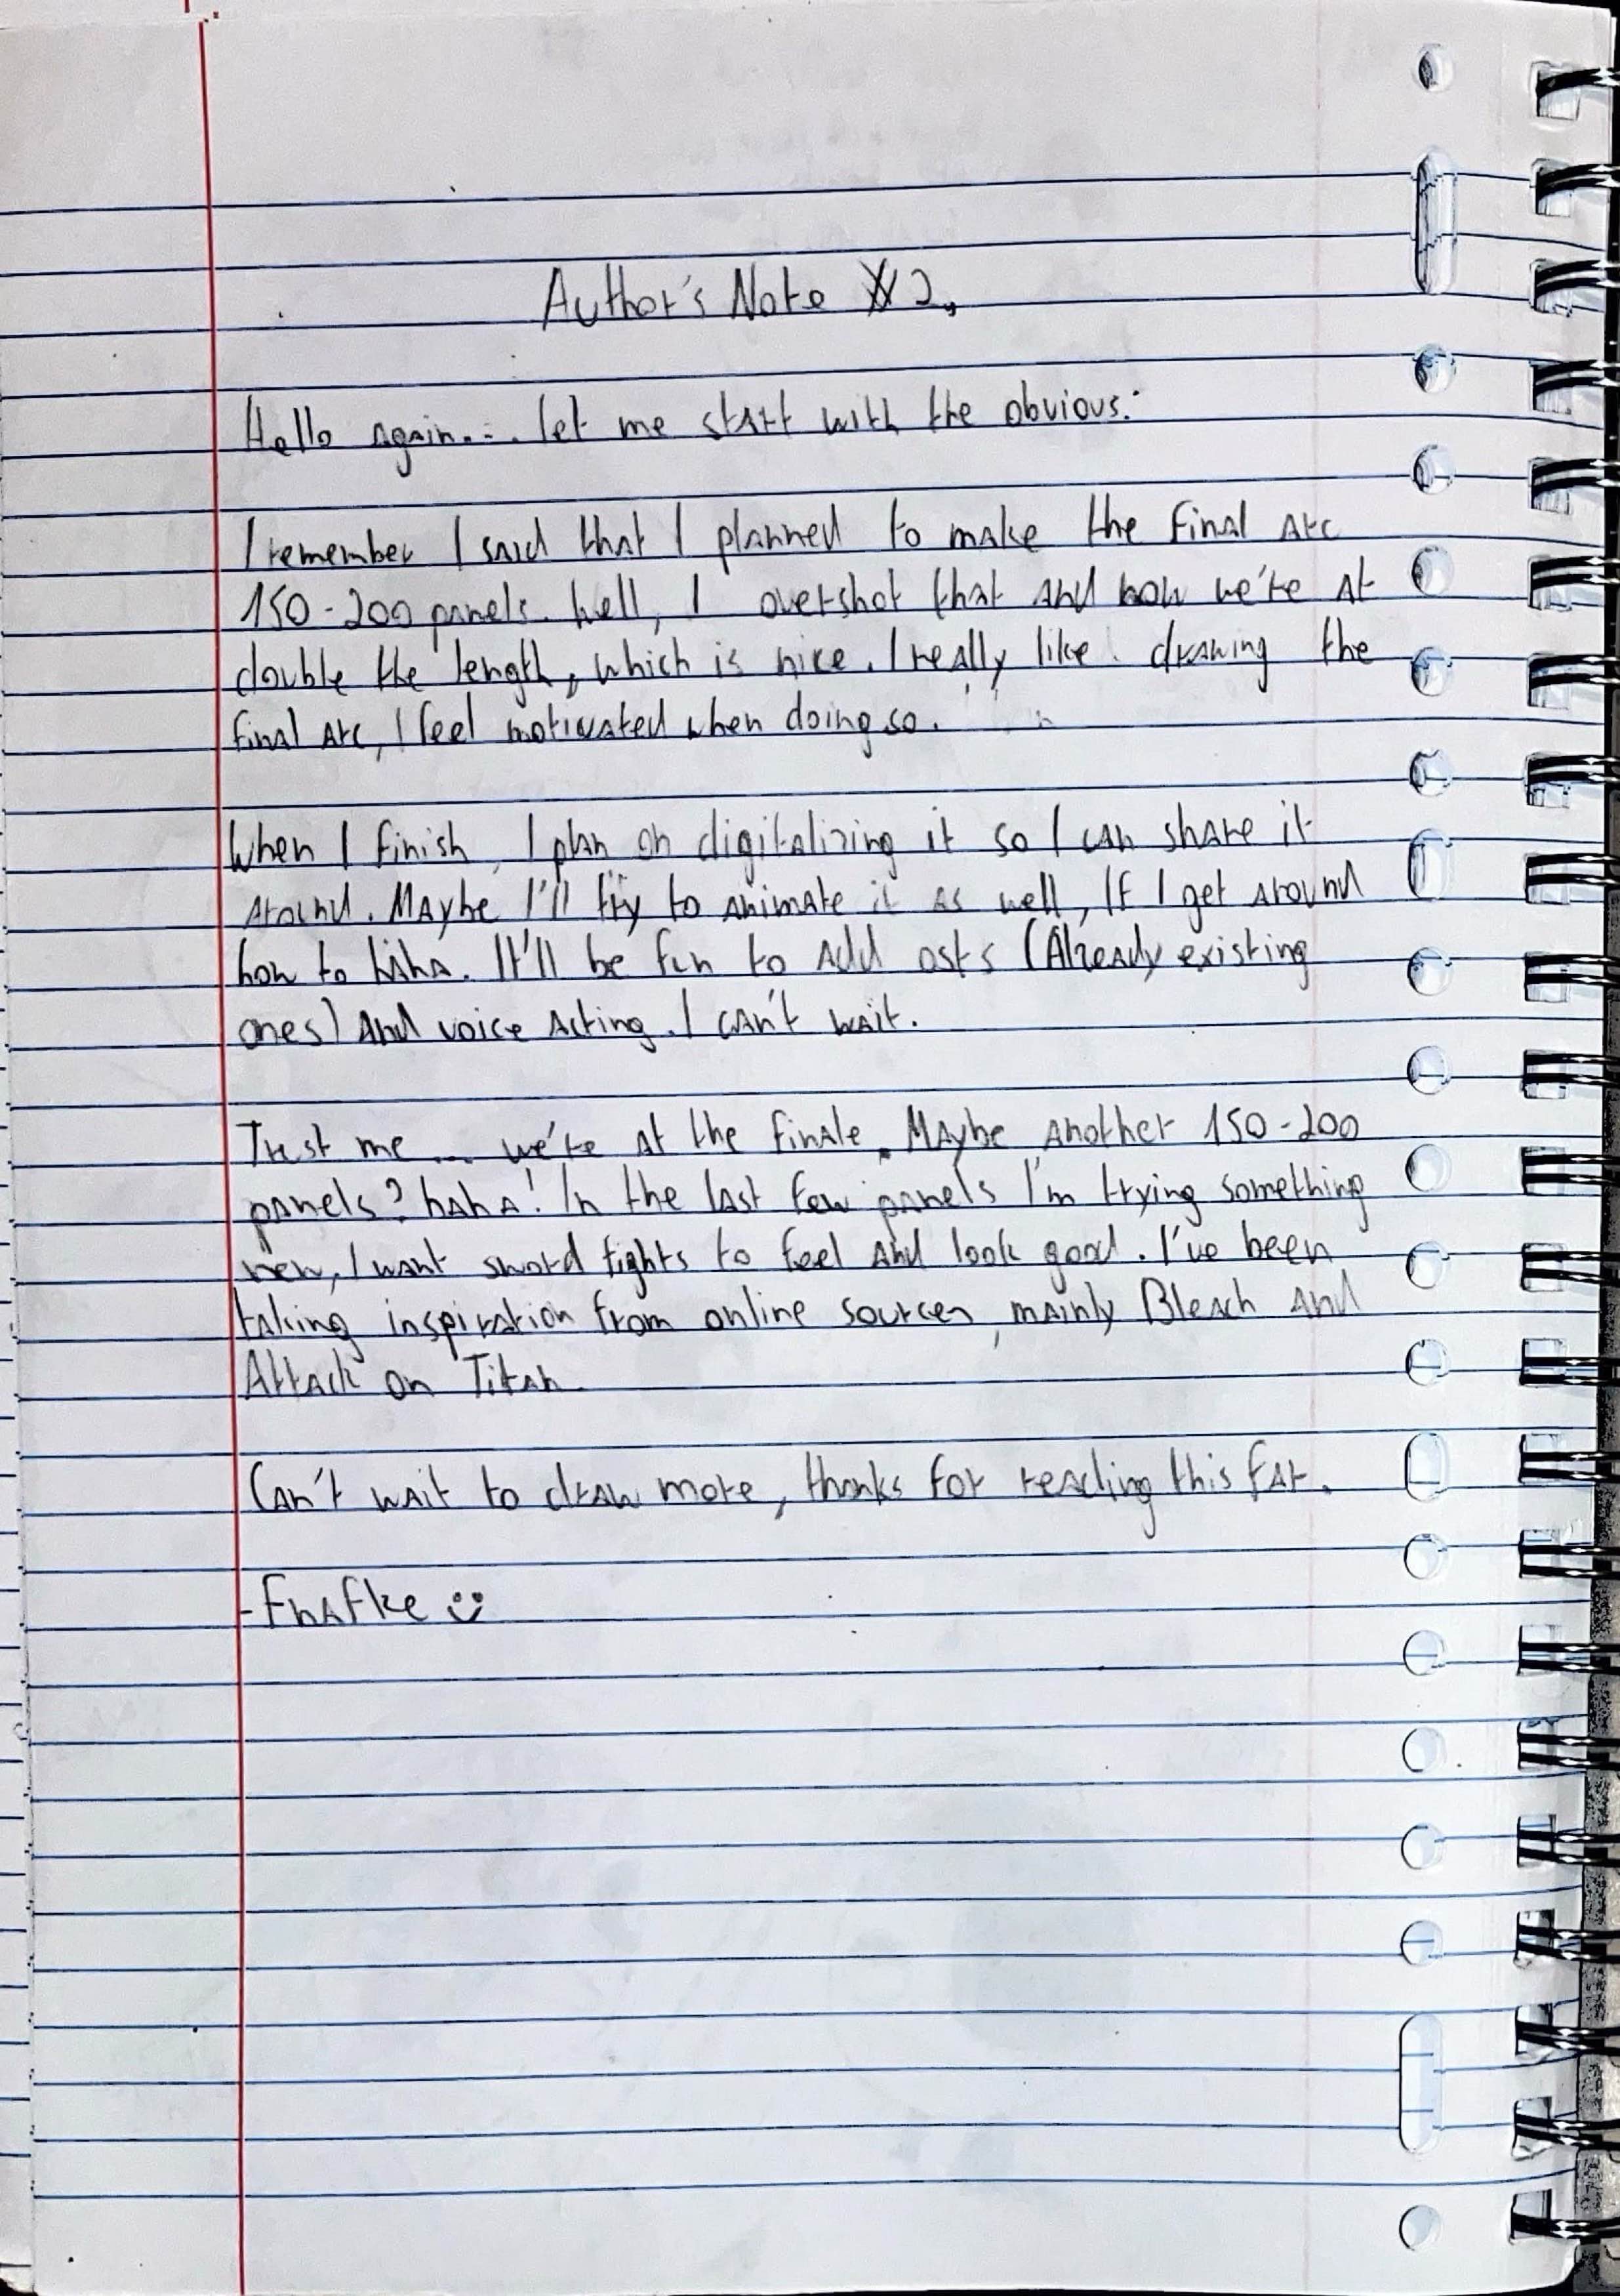 Author's Note #2,
Hello again... let me start with the obvious:
I remember I said that I planned to make the final arc
150-200 panels. Well, I overshot that and now we're at
double the length, which is nice. I really like drawing the
final arc, I feel motivated when doing so.
When I finish, I plan on digitalizing it so I can share it
around. Maybe I'll try to animate it as well, If I get around
how to haha. It'll be fun to add osts (Already existing
ones) and voice acting. I can't wait.
Trust me... we're at the finale. Maybe another 150-200
panels? haha! In the last few panels I'm trying something
new, I want sword fights to feel and look good. I've been
taking inspiration from online sources, mainly Bleach and
Attack on Titan.
Can't wait to draw more, thanks for reading this far.
-Fnafke :)